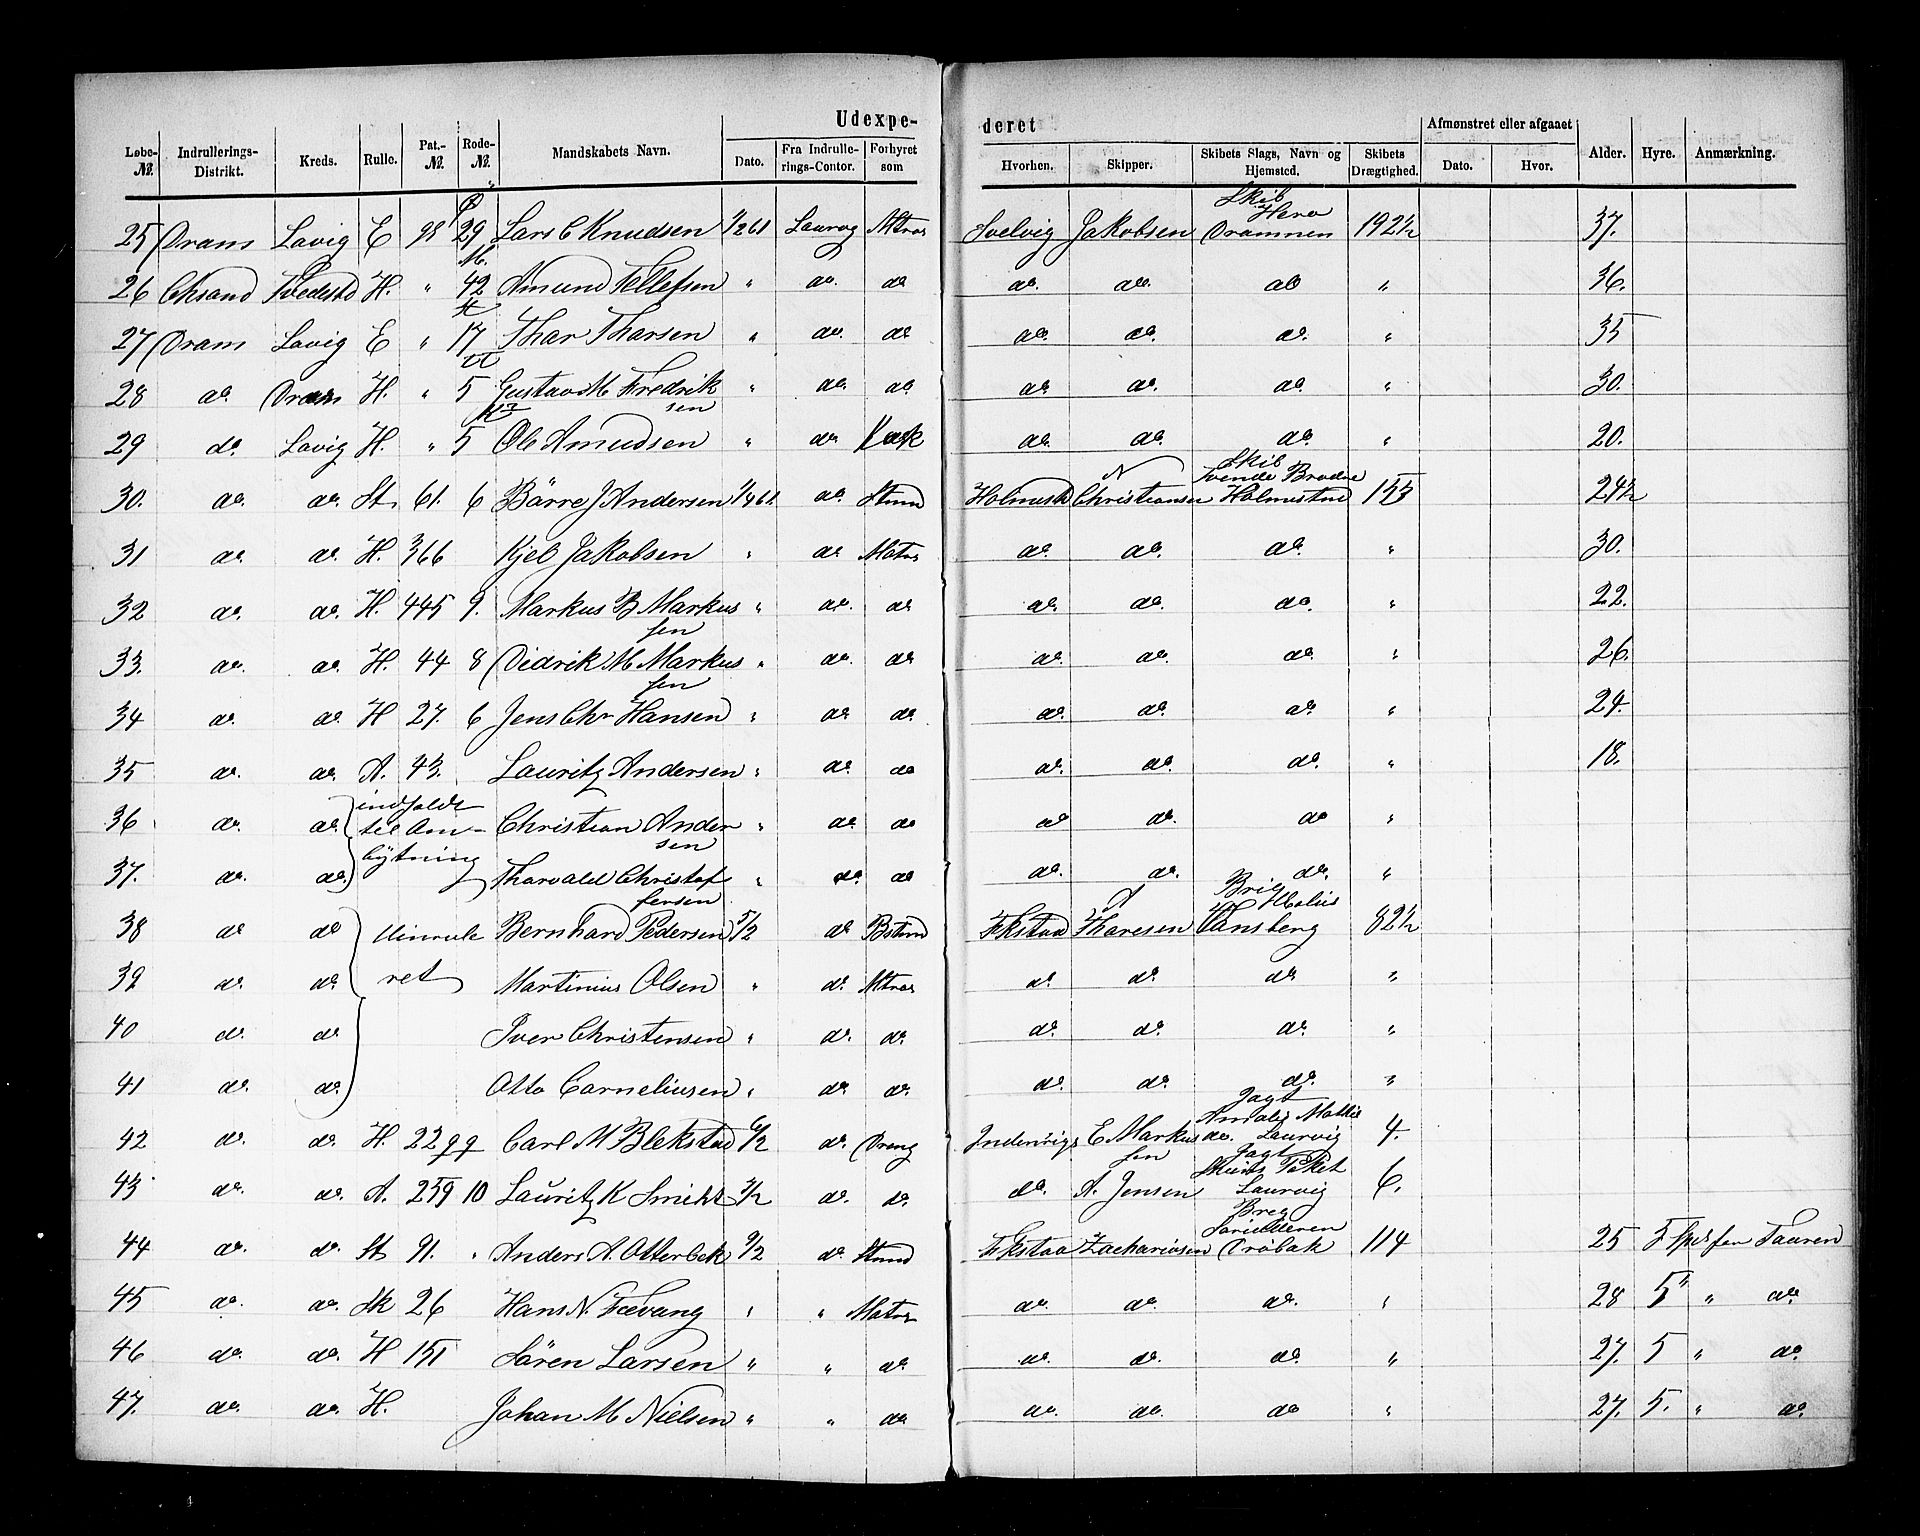 Udexpe- deret
Løbe-№. Indrullerings-Distrikt. Kreds. Rulle. Pat.-№. Rode-№. Mandskabets Navn. Dato. Fra Indrullerings-Contor. Forhyret som Hvorhen. Skipper. Skibets Slags, Navn og Hjemsted. Skibets Drægtighed. Afmønstret eller afgaaet Dato. Hvor. Alder. Hyre. Anmærkning.
25 Dram Lavig E 98 29 Lars C Knudsen 1/2 61 Laurvg Mtros Svelvig Jakobsen Skib Hera Drammen 192½ 37.
26 Chsand Tvedestd H. " 42 Amund Tellefsen " do. do do. do. do " 36.
27 Dram Lavig E " 17 Thor Thorsen " do. do do. do. do. " 35
28 do. Dram H. " 5 Gustav M Fredriksen " do. do. do. do. do. " 30.
29 do. Lavig H. " 5 Ole Amudsen " do. Kok do. do. do. " 20.
30. do. do. St 61. 6 Børre J Andersen 1/4 61. do. Stmd Holmestd N Christiansen Skib Tvende Brødre Holmestrd 155 24½
31 do. do. H. 366 Kjel Jakobsen " do. Matros do. do. do. " 30.
32 do. do. H. 445 9. Markus B Markussen " do. do do. do. do. " 22.
33. do. do. H. 44 8 Didrik M Markussen " do. do do. do. do. " 26.
34 do. do. H 27. 6 Jens Chr Hansen " do. do. do. do. do. " 24.
35 do. do. A. 43. Lauritz Andersen " do. do do. do. do. " 18.
36 do. do. indfaldt til Om- Christian Andersen " do. do do do. do "
37. do. do. bytning Thorvald Christofersen " do. do do. do. do. "
38 do do Uinrule Bernhard Pedersen 5/2 do. Bstmd Fkstad A Thoresen Brig Tønsberg 82½
39 do. do. ret Martinius Olsen " do. Mtros do. do. do "
40 do. do Iver Christensen " do. do. do. do. do. "
41 do. do. Otto Corneliusen " do. do. do. do. do. "
42 do. do. H. 22 99 Carl M Blekstad 6/2 do. Dreng Indenrigs E Markussen Jagt Amalie Mathilde. Laurvig 4.
43 do. do. A. 259 10 Lauritz K Smidt 7/2 do. do. do. A. Jensen Jagt Paket Laurvig 6.
44 do. do. St 91. " Anders A. Otterbek 9/2 do. Stmd Fkstad Zachariasen Brig Drøbak 114 25 5 Spd for Touren
45 do. do. Sk 26 Hans N. Fevang " " Matros do. do. do. " 28 5 " do.
46 do. do. H 151 Søren Larsen " " do. do. do. do. " 27. 5 " do.
47. do. do. H. Johan M Nielsen " " do do. do. do " 27. 5. " do.